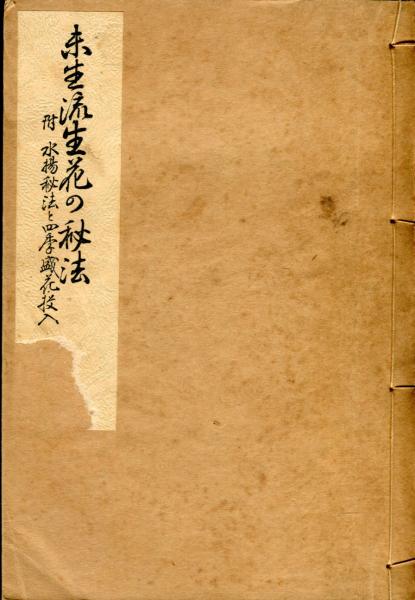 未生流生花の秘法
附 水揚秘法と四季盛花投入